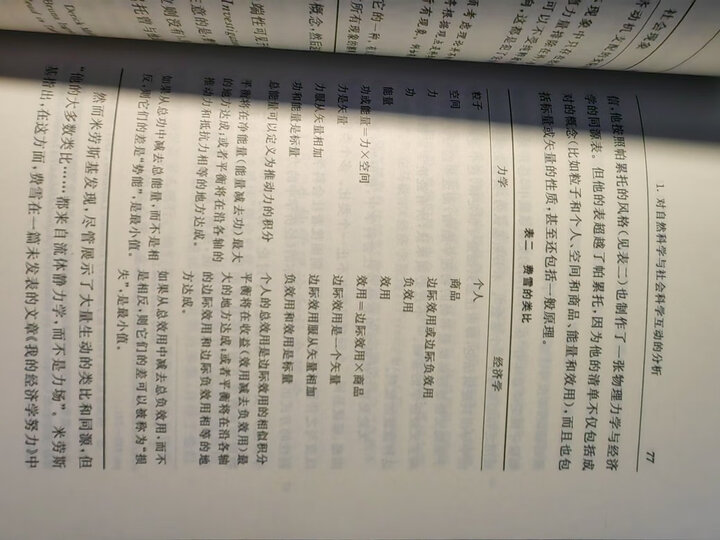 1. 对自然科学与社会科学互动的分析 77
信,他按照帕累托的风格(见表二)也制作了一张物理力学与经济
学的同源表。但他的表超越了帕累托,因为他的清单不仅包括成
对的概念(比如粒子和个人、空间和商品、能量和效用),而且也包
括标量或矢量的性质,甚至还包括一般原理。
表二 费雪的类比
力学 经济学
粒子 个人
空间 商品
力 边际效用或边际负效用
功 负效用
能量 效用
功或能量=力×空间 效用=边际效用×商品
力是矢量 边际效用是一个矢量
力服从矢量相加 边际效用服从矢量相加
功和能量是标量 负效用和效用是标量
总能量可以定义为推动力的积分 个人的总效用是边际效用的相似积分
平衡将在净能量(能量减去功)最大 平衡将在收益(效用减去负效用)最
的地方达成;或者平衡将在沿各轴的 大的地方达成;或者平衡将在沿各轴
推动力和抵抗力相等的地方达成。 的边际效用和边际负效用相等的地
方达成。
如果从总功中减去总能量,而不是相 如果从总效用中减去总负效用,而不
反,则它们的差是“势能”,是最小值。 是相反,则它们的差可以被称为“损
失”,是最小值。
然而米劳斯基发现,尽管展示了大量生动的类比和同源,但
“他的大多数类比……都来自流体静力学,而不是力场”。米劳斯
基指出,在这方面,费雪在一篇未发表的文章《我的经济学努力》中
社会现象